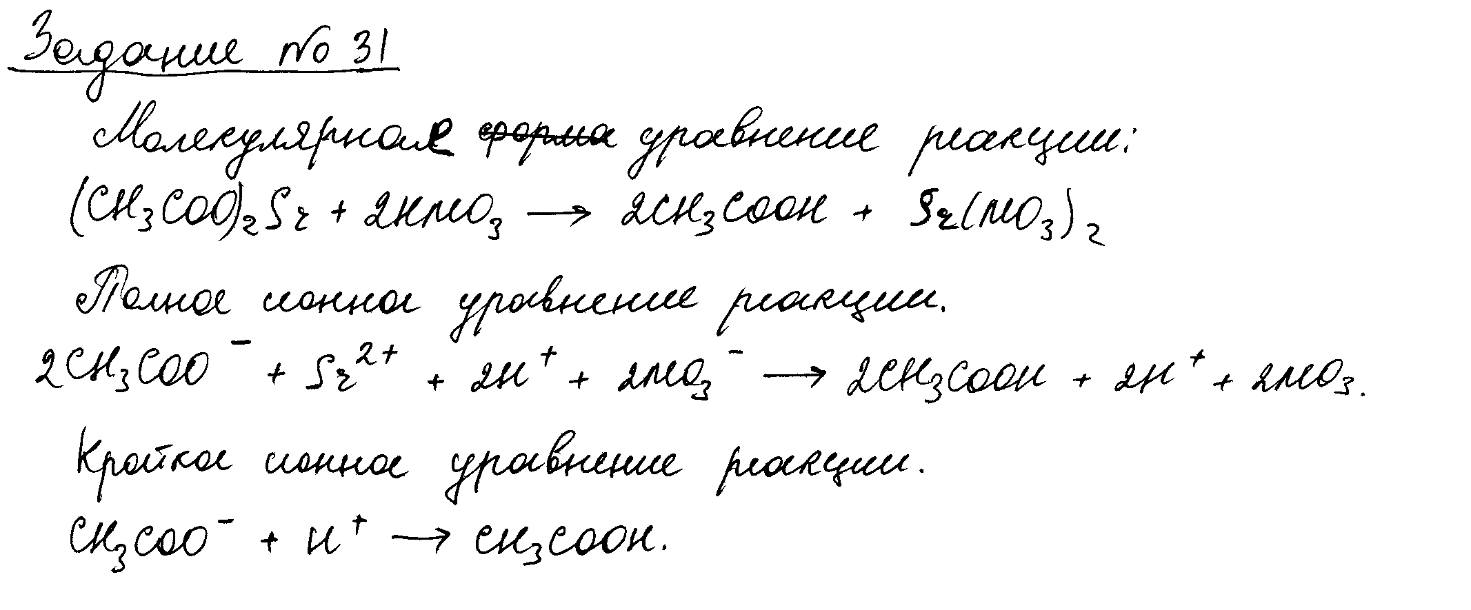 Задание № 31
Молекулярное форма уравнение реакции:
(CH₃COO)₂Sr + 2HNO₃ → 2CH₃COOH + Sr(NO₃)₂
Полное ионное уравнение реакции.
2CH₃COO⁻ + Sr²⁺ + 2H⁺ + 2NO₃⁻ → 2CH₃COOH + 2H⁺ + 2NO₃.
Краткое ионное уравнение реакции.
CH₃COO⁻ + H⁺ → CH₃COOH.